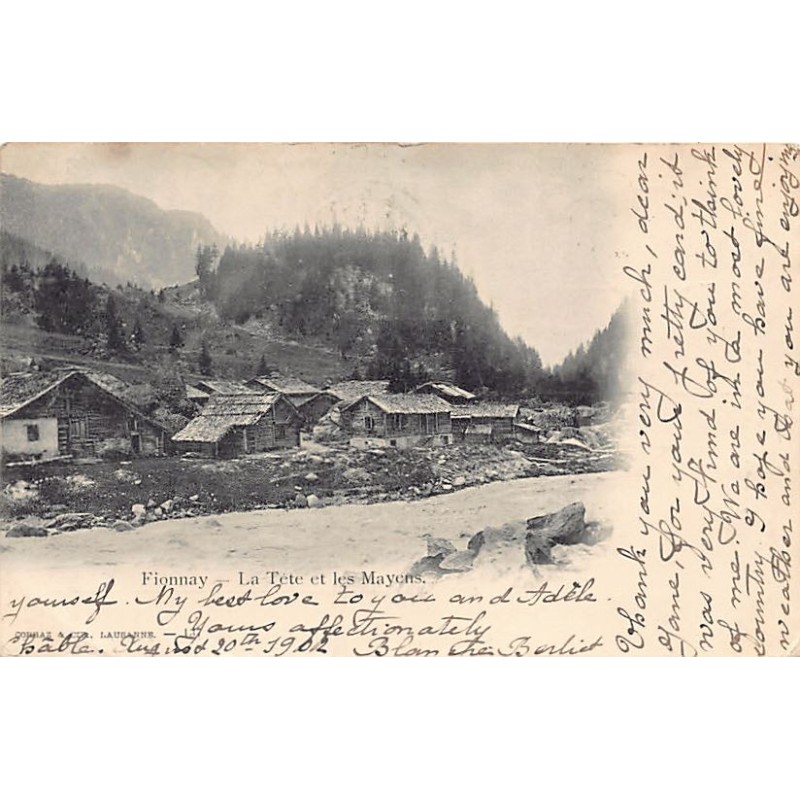 Fionnay — La Tête et les Mayens.
CORBAZ & CIE, LAUSANNE. —
Thank you very much, dear
Jane, for your pretty card, it
was very kind of you to think
of me. We are in a most lovely
country. I hope you have fine
weather and that you are enjoying
yourself. My best love to you and Adèle.
Yours affectionately
August 20th 1902 Blanche